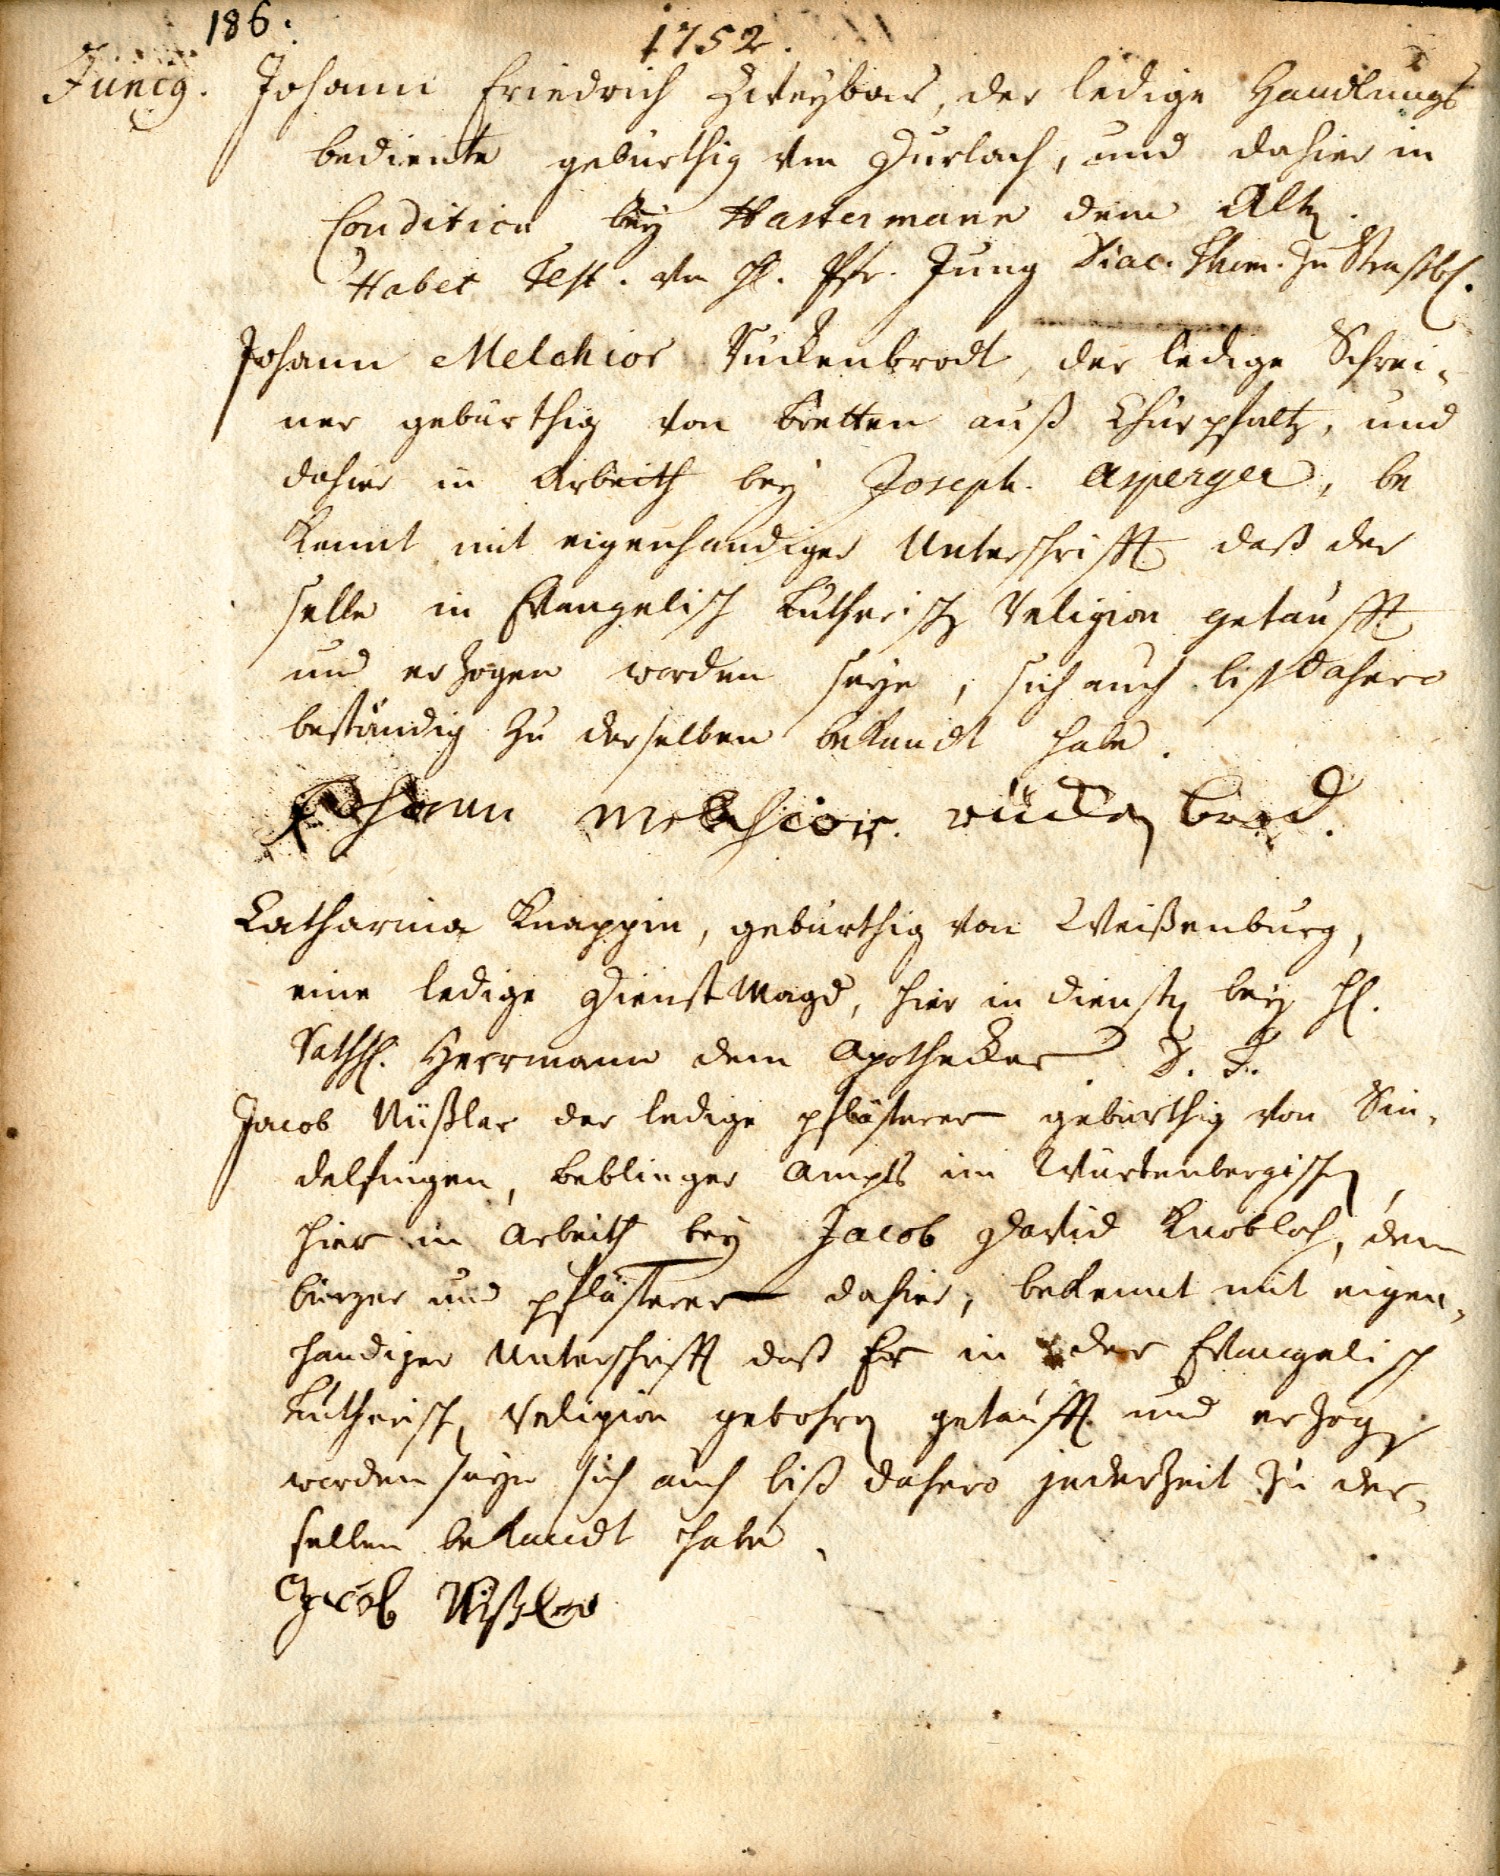 186.
1752.
Juncg. Johann Friedrich Zweybar, der ledige Handlungs
bediente gebürthig von Durlach, und dahier in
Condition bey Hastermann dem Alten.
Habet Test. von H. Pfr. Jung Diac. Thom. zu Straßb.
Johann Melchior Ruckenbrodt, der ledige Schrei-
ner gebürthig von Bretten auß Churpfaltz, und
dahier in Arbeith bey Joseph Asperger, be
kennt mit eigenhandiger Unterschrifft daß der
selbe in Evangelisch Lutherischer Religion getaufft
und erzogen worden seye, sich auch biß dahero
beständig zu derselben bekandt habe.
Johann Melchior rücken brod.
Catharina Knappin, gebürthig von Weißenburg,
eine ledige Dienst Magd, hier in diensten bey H.
Rathh. Herrmann dem Apothecker. D. T.
Jacob Nüßler der ledige pflästerer gebürthig von Sin-
delfingen, Beblinger Ampts im Würtenbergischen,
hier in Arbeith bey Jacob David Knobloch, dem
burger und pflästerer dahier, bekennt mit eigen-
handiger Unterschrifft daß Er in der Evangelisch
Lutherischen Religion gebohren getaufft und erzogen
worden seye sich auch biß dahero jederzeit zu der-
selben bekandt habe.
Jacob Nißler